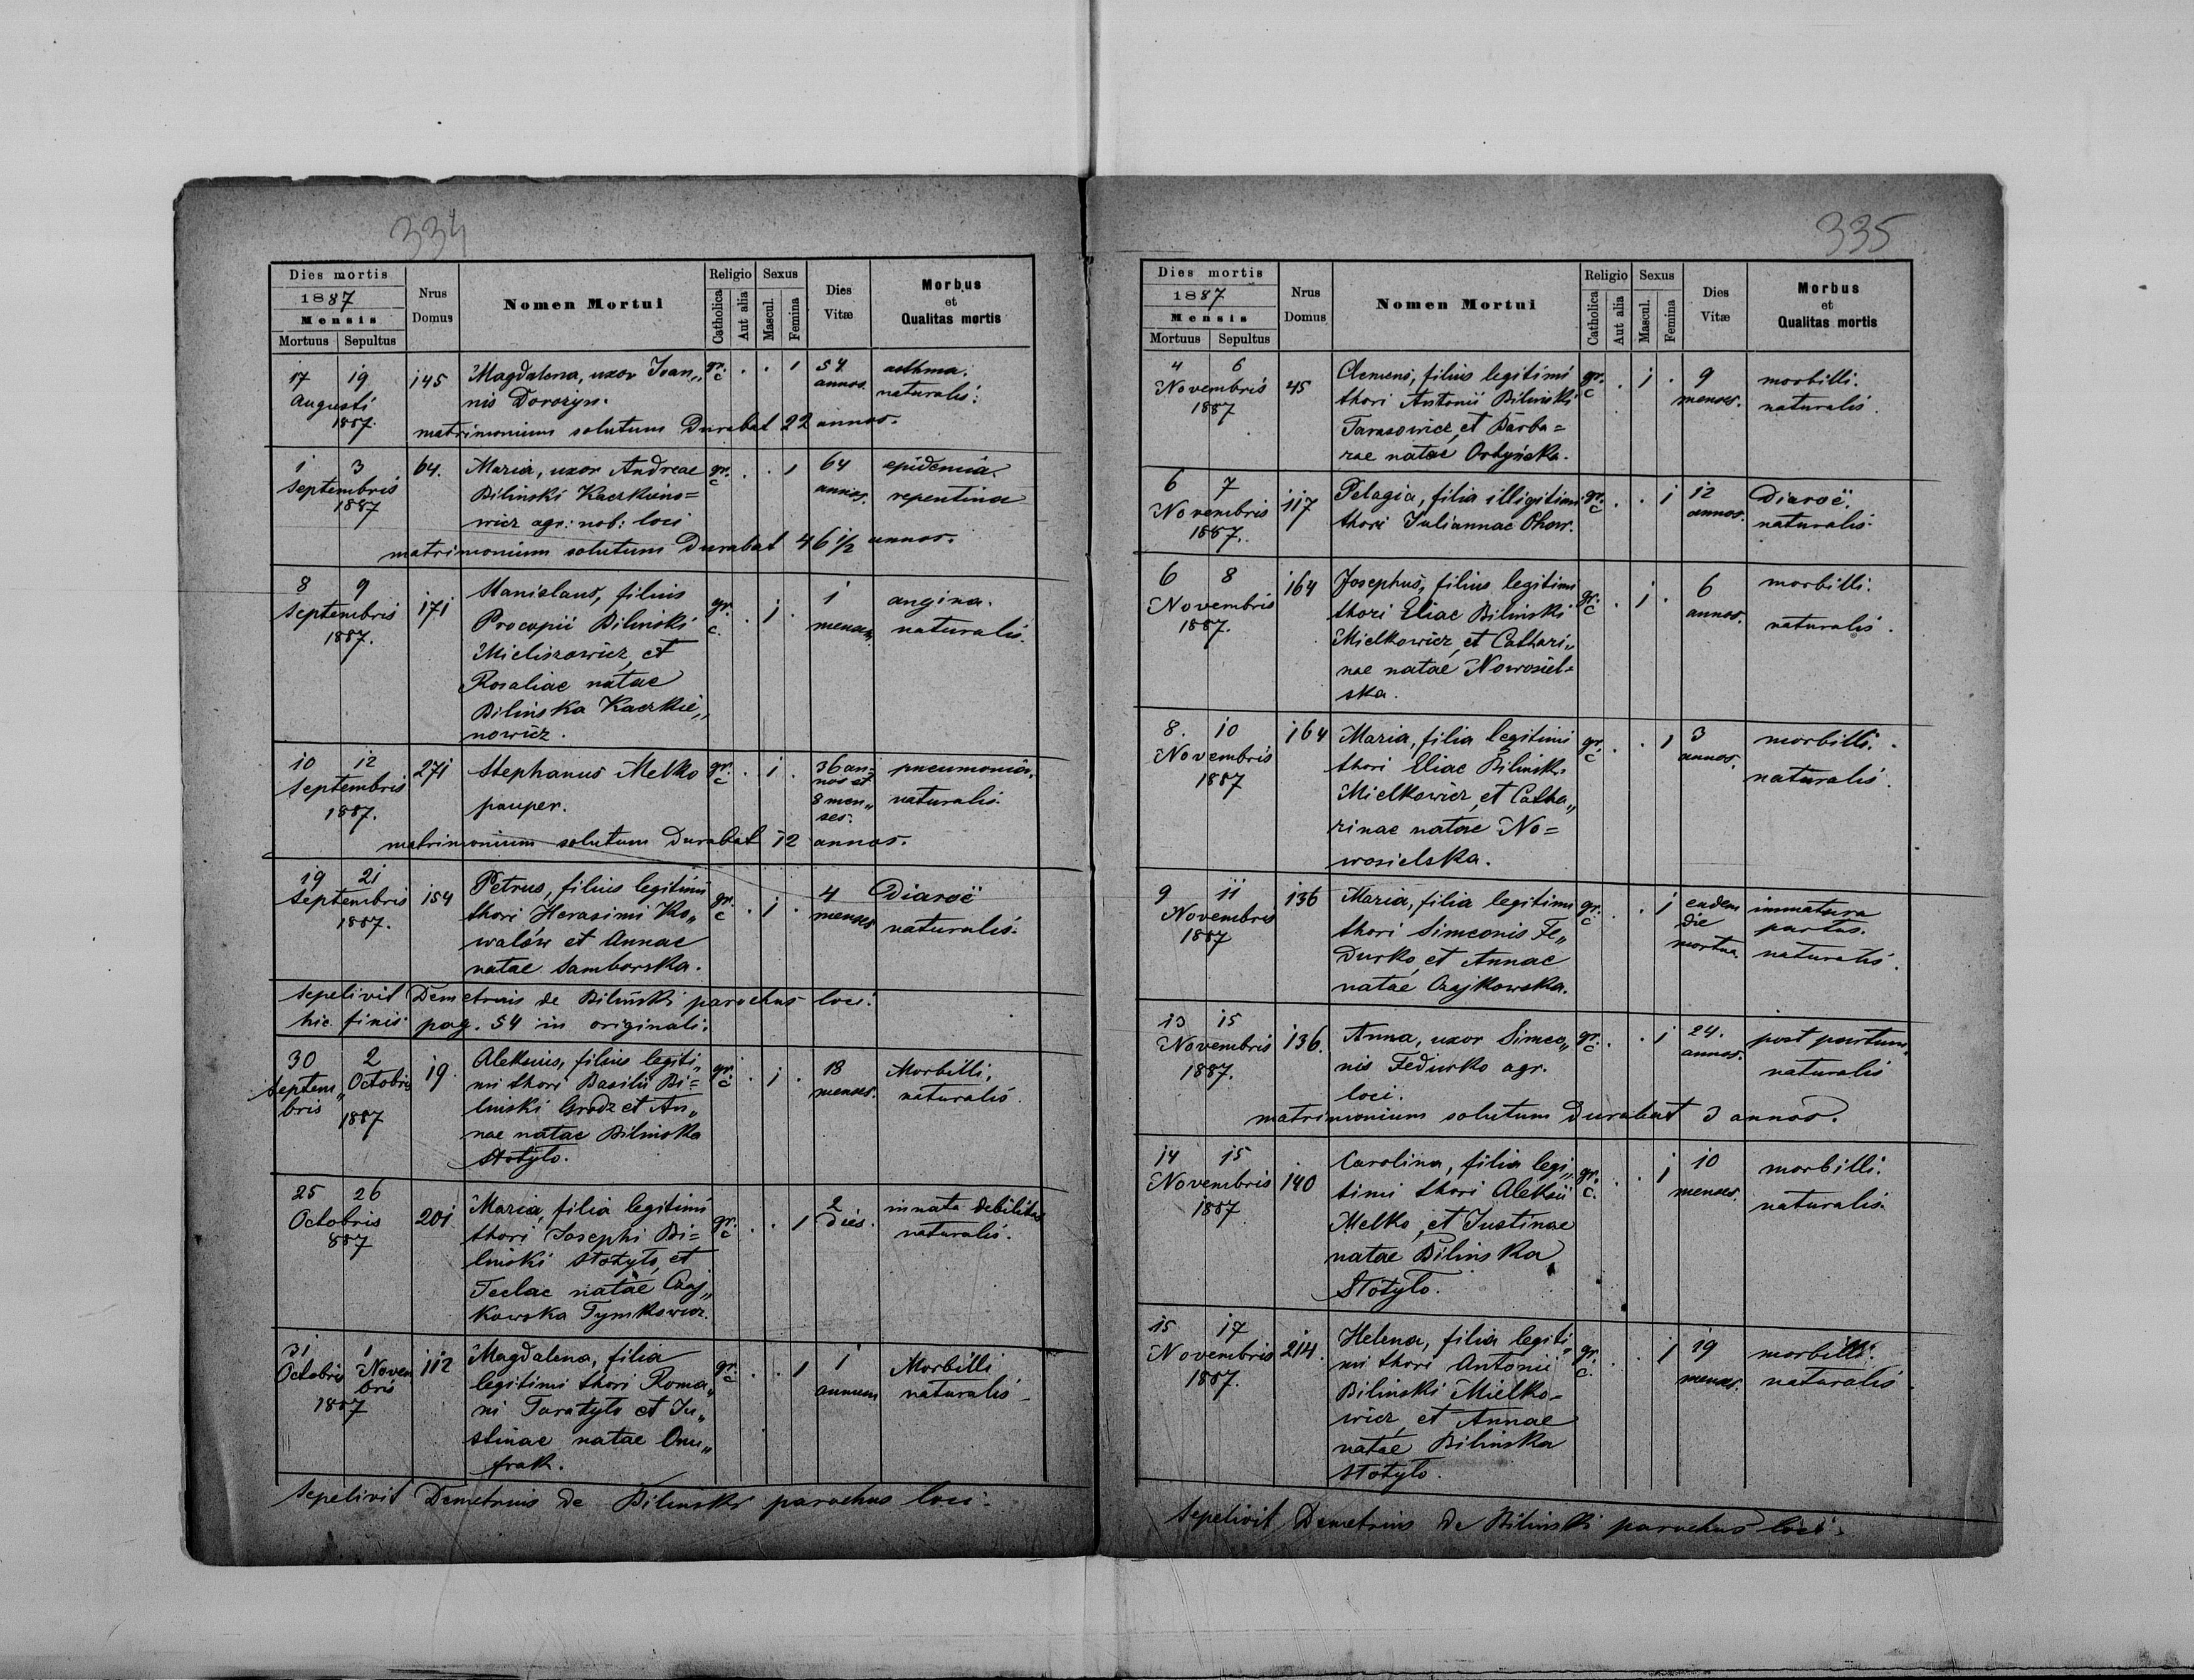 334
Dies mortis
1887
Mensis
Mortuus Sepultus
Nrus Domus
Nomen Mortui
Religio
Catholica
Aut alia
Sexus
Mascul.
Femina
Dies Vitæ
Morbus
et
Qualitas mortis
17 19 145 Magdalena, uxor Ioan„ gr. . . 1 54 asthma.
Augusti nis Dorozyn. c annos. naturalis.
1887. matrimonium solutum Durabat 22 annos.
1 3 64. Maria, uxor Andreae gr. . . 1 64 epidemia
Septembris Bilinski Kaczkieno= c annos. repentina
1887 wicz agr: nob: loci
matrimonium solutum Durabat 46 1/2 annos.
8 9 171 Stanislaus, filius gr. . 1 . 1 angina.
Septembris Procopii Bilinski c. mensem naturalis.
1887. Mieliszowicz, et
Rosaliae natae
Bilińska Kaczkie„
nowicz.
10 12 271 Stephanus Melko gr. . 1 . 36 an- pneumonia.
Septembris pauper. c nos et naturalis.
1887. 8 men„
ses.
matrimonium solutum Durabat 12 annos.
19 21 154 Petrus, filius legitimi gr. . 1 . 4 Diaroë
Septembris thori Herasimi Ko„ c menses naturalis.
1887. walów et Annae
natae Samborska.
Sepelivit Demetrius de Biliński parochus loci.
hic finis pag. 54 in originali.
30 2 19. Aleksius, filius legiti„ gr. . 1 . 18 Morbilli,
Septem„ Octobris mi thori Basilii Bi= c menses. naturalis.
bris 1887 linski Grodz et An„
nae natae Bilinska
Stotyto.
25 26 201 Maria, filia legitimi gr. . . 1 2 innata debilitas
Octobris thori Josephi Bi= c dies. naturalis.
887 linski Stotyto, et
Teclae natae Czaj„
kowska Tymkowicz.
31 1 112 Magdalena, filia gr. . . 1 1 Morbilli
Octobris Novem legitimi thori Roma„ c annum naturalis
bris
1887 ni Taratyto et Ju„
stinae natae Onu„
frak.
Sepelivit Demetrius de Bilinski parochus loci.
335
Dies mortis
1887
Mensis
Mortuus Sepultus
Nrus Domus
Nomen Mortui
Religio
Catholica
Aut alia
Sexus
Mascul.
Femina
Dies Vitæ
Morbus
et
Qualitas mortis
4 6 45 Clemens, filius legitimi gr. . 1 . 9 morbilli.
Novembris thori Antonii Bilinski c menses. naturalis.
1887 Tarasowicz, et Barba=
rae natae Ortyńska.
6 7 117 Pelagia, filia illigitimi gr. . . 1 12 Diaroë.
Novembris thori Juliannae c annos. naturalis.
1887.
6 8 164 Josephus, filius legitimi gr. . 1 . 6 morbilli.
Novembris thori Eliae Bilinski c annos. naturalis.
1887. Mielkowicz, et Cathari„
nae natae Nowosiel=
ska.
8. 10 164 Maria, filia legitimi gr. . . 1 3 morbilli.
Novembris thori Eliae Bilinski c annos. naturalis.
1887 Mielkowicz, et Catha„
rinae natae No=
wosielska.
9 11 136 Maria, filia legitimi gr. . . 1 eadem immatura
Novembris thori Simeonis Fe„ c die partus.
1887 durko, et Annae mortua naturalis.
natae Czajkowska.
13 15 136. Anna, uxor Simeo„ gr. . . 1 24. post partum.
Novembris nis Fedurko agr. c annos. naturalis
1887. loci.
matrimonium solutum Durabat 3 annos.
14 15 140 Carolina, filia legi„ gr. . . 1 10 morbilli.
Novembris timi thori Aleksii c. menses. naturalis.
1887 Melko, et Justinae
natae Bilinska
Stotyto.
15 17 214. Helena, filia legiti„ gr. . . 1 19 morbilli.
Novembris mi thori Antonii c. menses. naturalis
1887. Bilinski Mielko=
wicz, et Annae
natae Bilinska
Stotyto.
Sepelivit Demetrius de Bilinski parochus loci.